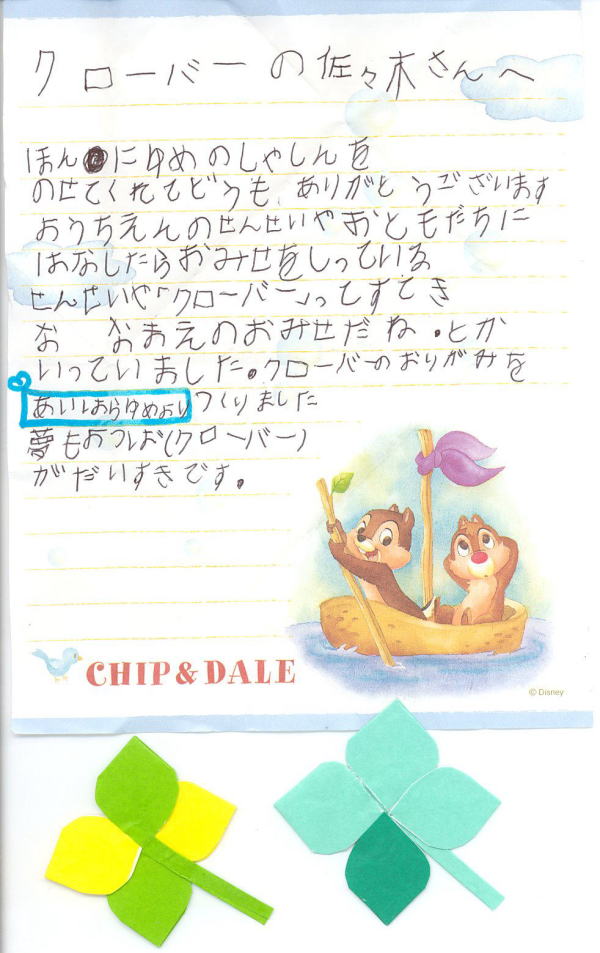 クローバーの佐々木さんへ
ほんにゆめのしゃしんを
のせてくれてどうも、ありがとうございます
ようちえんのせんせいやおともだちに
はなしたらおみせをしっている
せんせいや「クローバー」ってすてき
な なまえのおみせだね。とか
いっていました。クローバーのおりがみを
つくりました
夢もよつば(クローバー)
がだいすきです。
CHIP & DALE
© Disney